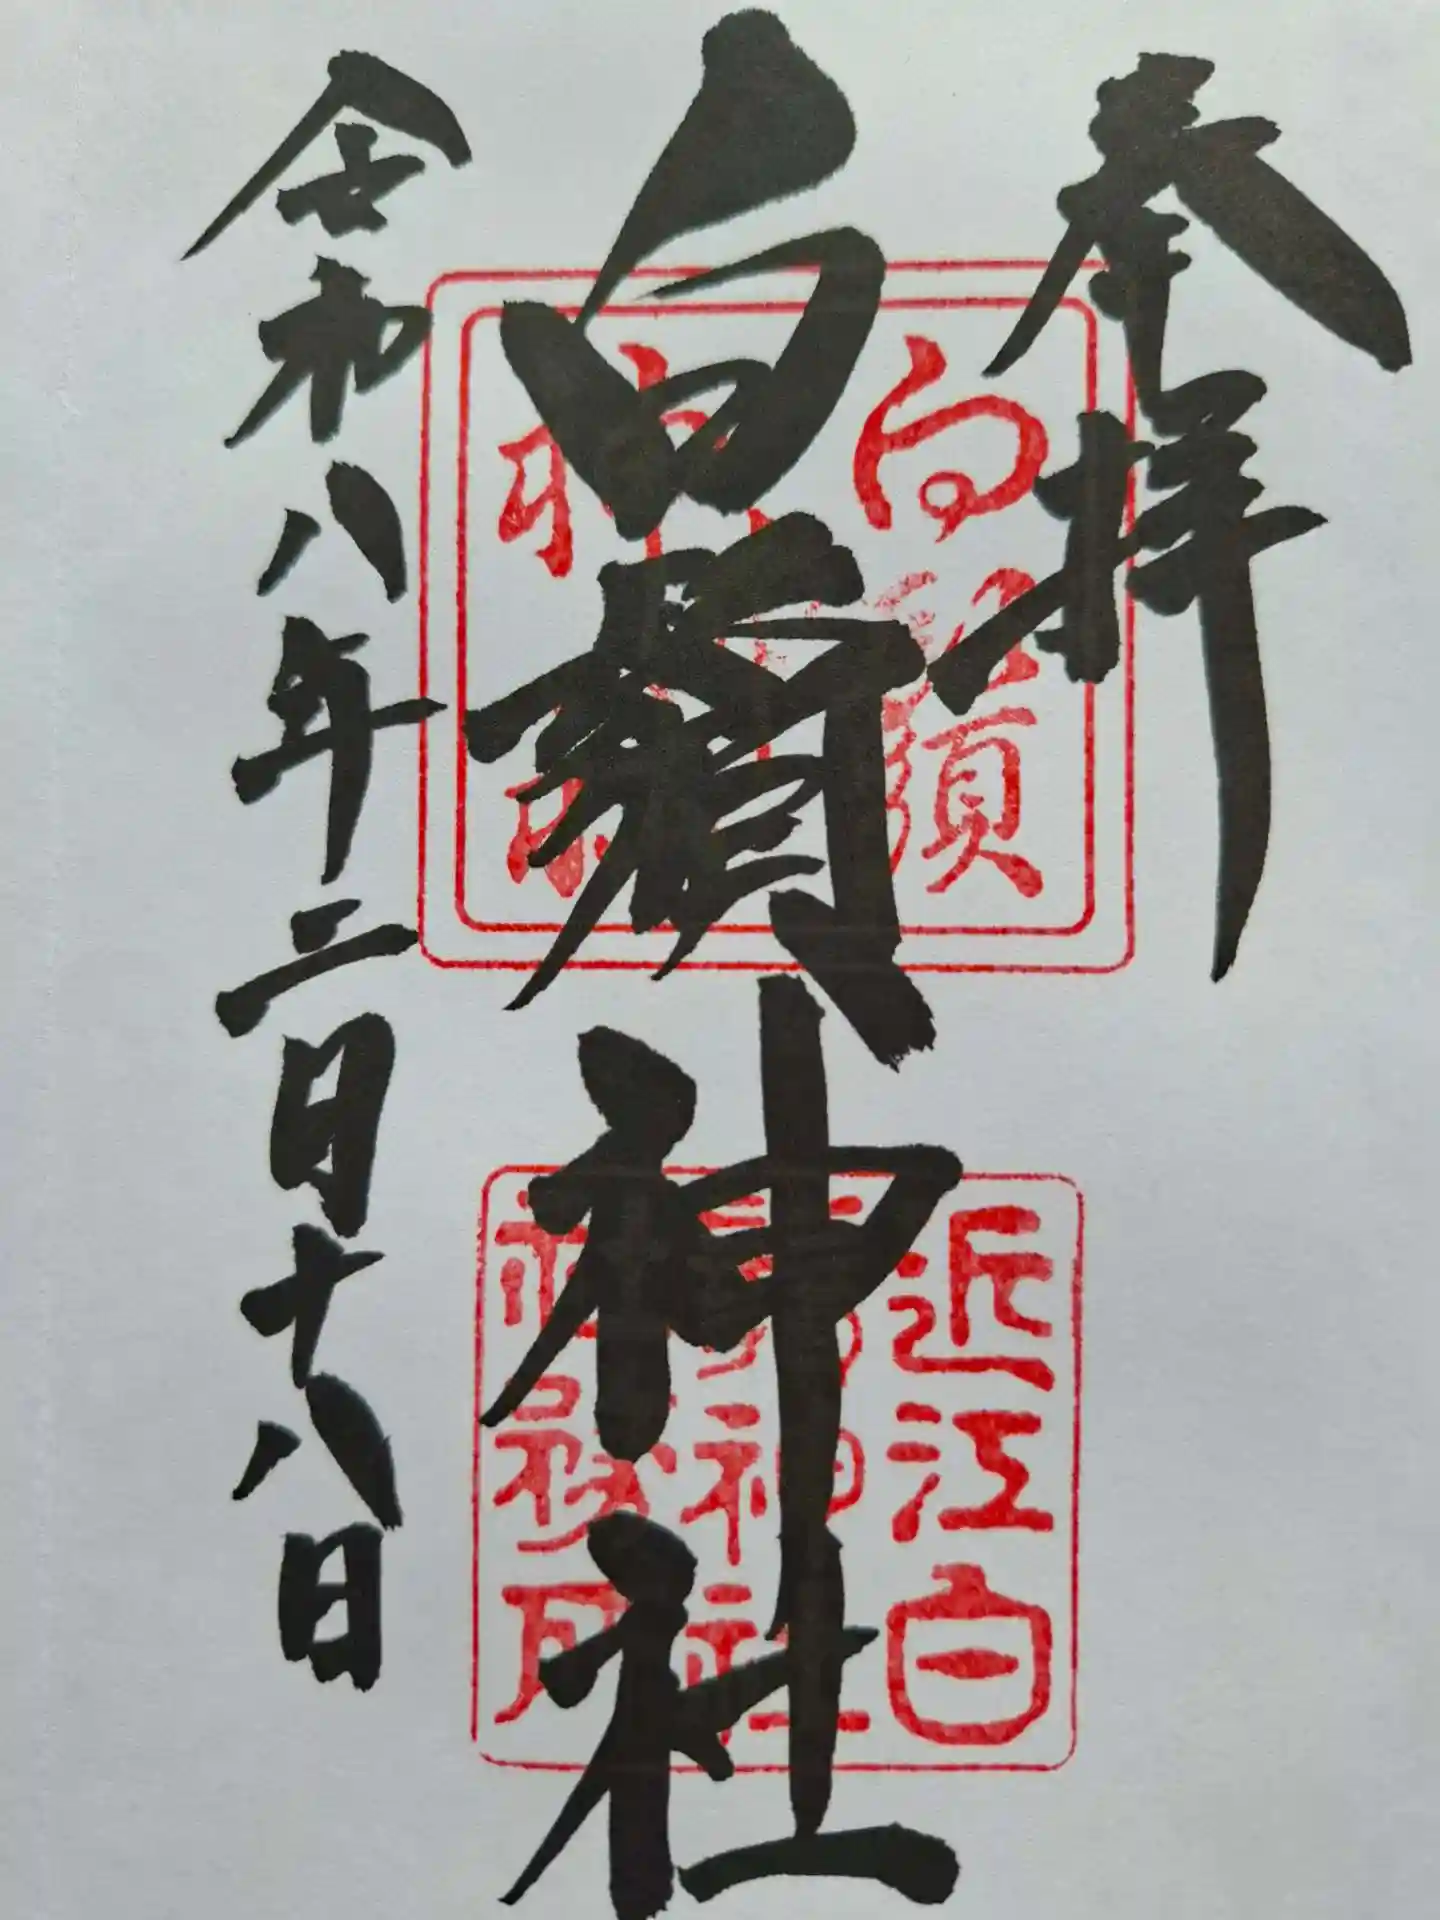 奉拝
白鬚神社
令和八年二月十八日
白鬚
近江白
鬚神社
社務所